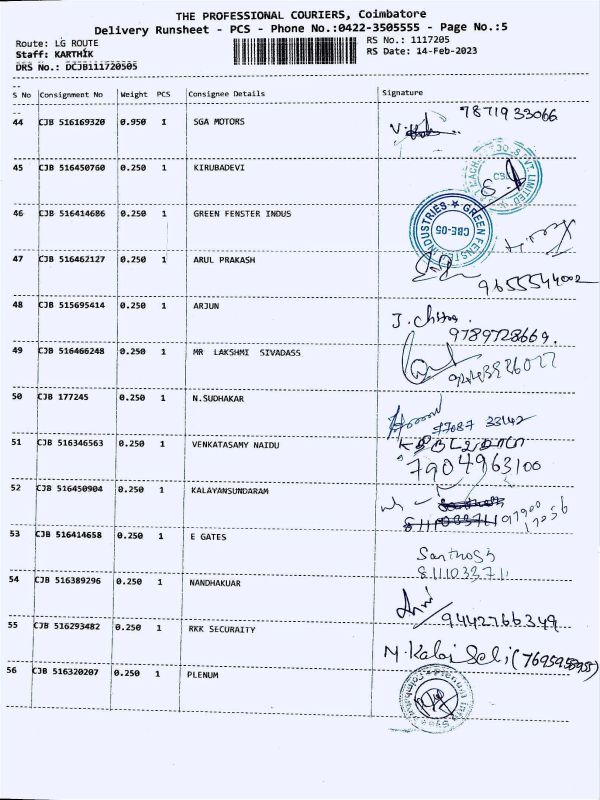 THE PROFESSIONAL COURIERS, Coimbatore
Delivery Runsheet - PCS - Phone No.:0422-3505555 - Page No.:5
Route: LG ROUTE RS No.: 1117205
Staff: KARTHIK RS Date: 14-Feb-2023
DRS No.: DCJB111720505
--
S No Consignment No Weight PCS Consignee Details Signature
--
44 CJB 516169320 0.950 1 SGA MOTORS 7871933066
45 CJB 516450760 0.250 1 KIRUBADEVI
46 CJB 516414686 0.250 1 GREEN FENSTER INDUS
GREEN FENSTER INDUSTRIES CBE-05
47 CJB 516462127 0.250 1 ARUL PRAKASH 9655544002
48 CJB 515695414 0.250 1 ARJUN J. Chitra 9789728669.
49 CJB 516466248 0.250 1 MR LAKSHMI SIVADASS
50 CJB 177245 0.250 1 N.SUDHAKAR 77087 33142
51 CJB 516346563 0.250 1 VENKATASAMY NAIDU 7904963100
52 CJB 516450904 0.250 1 KALAYANSUNDARAM
53 CJB 516414658 0.250 1 E GATES Santhosh
8111033711
54 CJB 516389296 0.250 1 NANDHAKUAR 9442766349
55 CJB 516293482 0.250 1 RKK SECURAITY M. Kalai Selvi
56 CJB 516320207 0.250 1 PLENUM